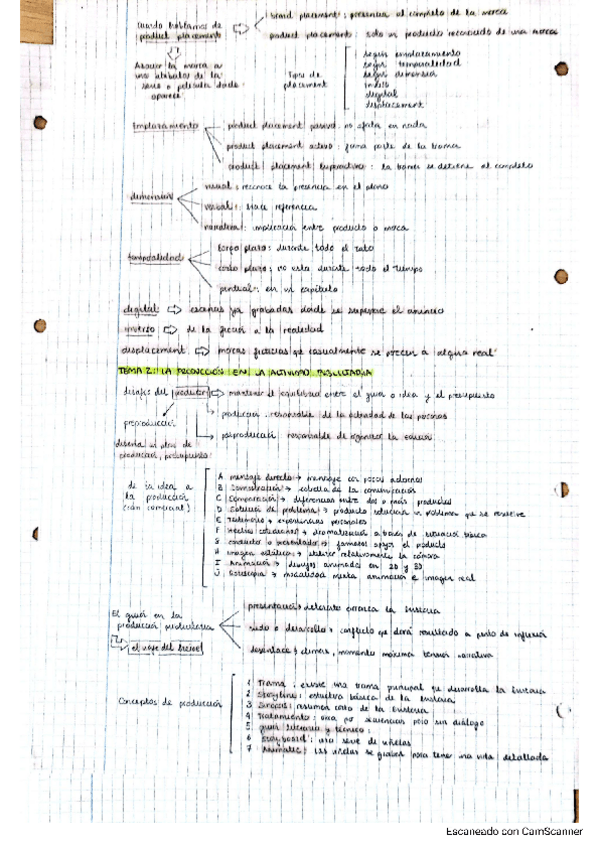 cuando hablamos de product placement
brand placement: presencia al completo de la marca
product placement: solo un producto reconocido de una marca
Asociar la marca a uno atributos de la serie o pelicula donde aparece
Tipos de placement
según emplazamiento
según temporalidad
según dimension
inverso
digital
displacement
Emplazamiento
product placement pasivo: no afecta en nada
product placement activo: forma parte de la trama
product placement hiperactivo: la trama se detiene al completo
dimension
visual: reconoce la presencia en el plano
verbal: hace referencia
narrativa: implicación entre producto o marca
temporalidad
largo plazo: durante todo el rato
corto plazo: no esta durante todo el tiempo
puntual: en un capítulo
digital ⇨ escenas ya grabadas donde se superpone el anuncio
inverso ⇨ de la ficcion a la realidad
displacement ⇨ marcas ficticias que casualmente se parecen a "alguna real"
TEMA 2: LA PRODUCCIÓN EN LA ACTIVIDAD PUBLICITARIA
desafios del productor ⇨ mantener el equilibrio entre el guion o idea y el presupuesto
preproduccion
produccion: responsable de la actividad de las personas
diseña un plan de produccion, presupuesto
posproduccion: responsable de organizar la
de la idea a la produccion
A mensaje directo → mensaje con pocos adornos
B Demostración → estrella de la comunicación
C Comparación → diferencias entre dos o mas productos
D Solucion de problema → producto relaciona un problema que se resuelve
E Testimonio → experiencias personales
F → dramatizacion a traves de situación básica
G conductor o presentador → famosos apoya el producto
H imagen estática → utilizar relativamente la cámara
I Animación → dibujos animados en 2D y 3D
J → modalidad mezcla animacion e imagen real
El guion en la produccion publicitaria
presentacion → detonante arranca la historia
nudo o desarrollo → conflicto que dará resultado a punto de inflexión
desenlace → climax, momento máxima tension narrativa
el viaje del heroe
Conceptos de producción
1 Trama: existe una trama principal que desarrolla la historia
2 Storyline: estructura básica de la historia
3 Sinopsis: resumen corto de la historia
4 Tratamiento: por secuencias pero sin diálogo
5 guion literario y técnico:
6 Storyboard: una serie de viñetas
7 Animatic: Las viñetas se graban para tener una vista detallada
Escaneado con CamScanner